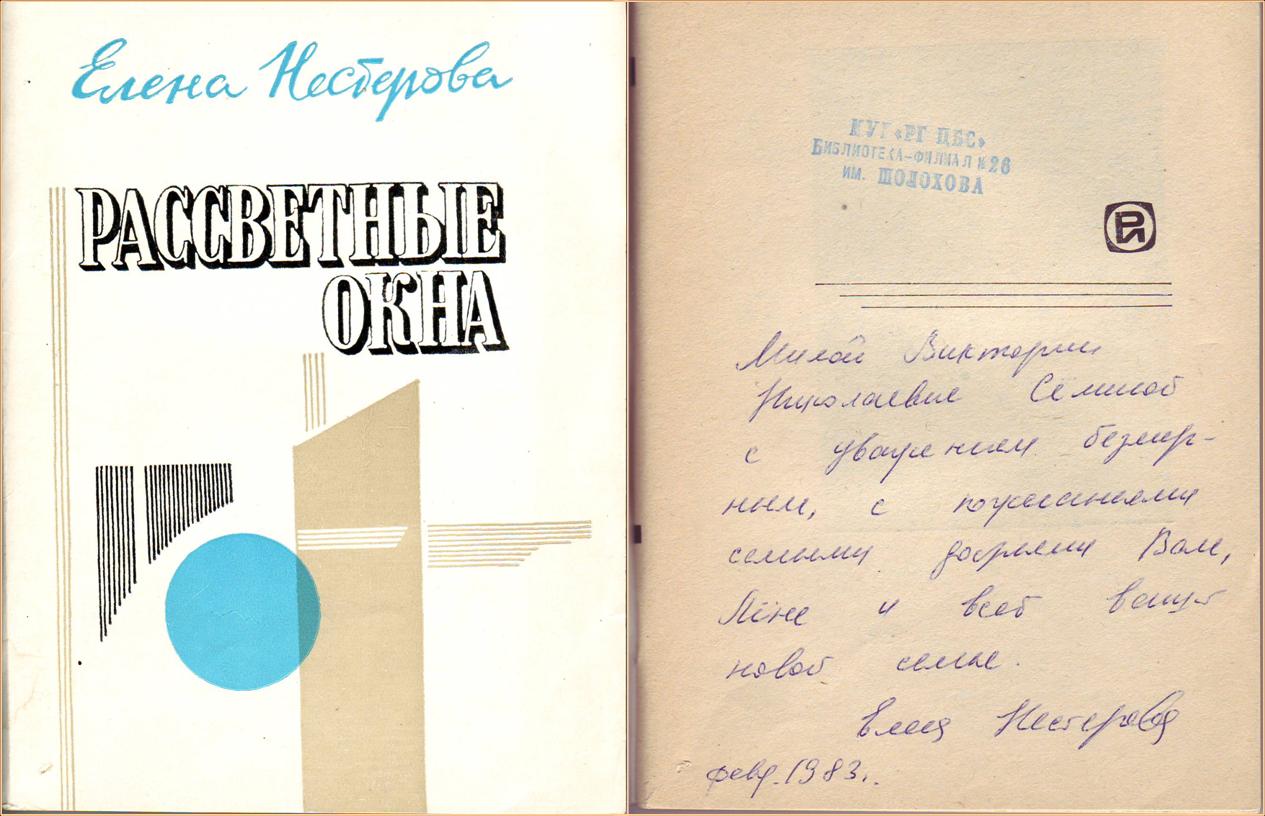 Елена Нестерова
РАССВЕТНЫЕ
ОКНА
КУГ «РГ ЦБС»
БИБЛИОТЕКА-ФИЛИАЛ №26
ИМ. ШОЛОХОВА
РИ
Милой Виктории
Николаевне Семиной
с уважением безмер-
ным, с пожеланиями
самыми добрыми Вам,
Лёне и всей вашей
новой семье.
Елена Нестерова
февр. 1983г.